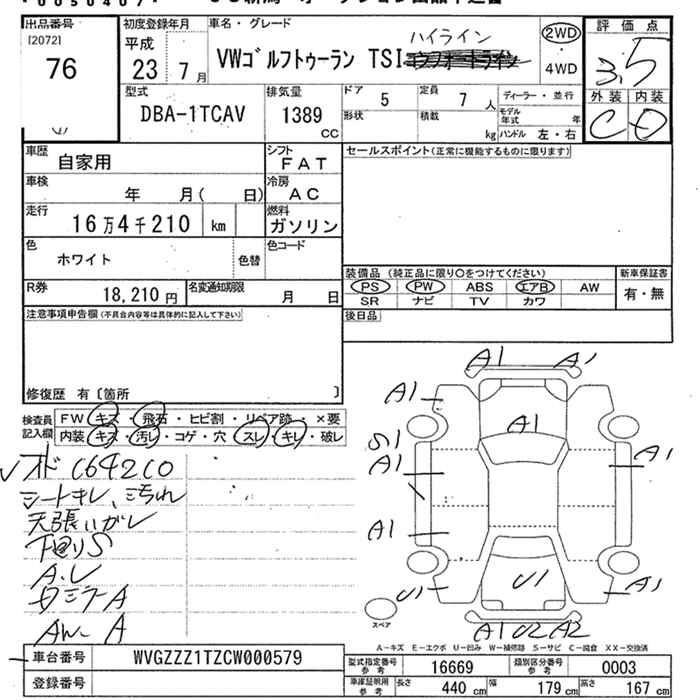 出品番号
[2072]
76
初度登録年月
平成
23 7月
車名・グレード
ハイライン
VWゴルフトゥーラン TSI
2WD
・
4WD
評価点
3.5
外装 内装
C D
型式
DBA-1TCAV
排気量
1389
CC
ドア
5
定員
7 人
ディーラー・並行
モデル年式 年
形状
積載
kg
ハンドル 左・右
車歴
自家用
シフト
FAT
セールスポイント(正常に機能するものに限ります)
車検
年 月( 日)
冷房
AC
走行
16万4千210 km
燃料
ガソリン
色
ホワイト
色替
色コード
R券
18,210 円
名変通知期限
月 日
装備品 (純正品に限り○をつけてください)
PS PW ABS エアB AW
SR ナビ TV カワ
新車保証書
有・無
後日品
注意事項申告欄(不具合内容等は具体的に記入して下さい)
修復歴 有〔箇所 〕
検査員記入欄
FW キズ・飛石・ヒビ割・リペア跡・×要
内装 キズ・汚レ・コゲ・穴・スレ・キレ・破レ
シートキレ、汚れ
天張いがレ
下回りS
AW A
A1 A1
A1
A1
S1
A1
A1
A1
U1
U1
A1
A1 U2 A2
スペア
A-キズ E-エクボ U-凹み W-補修跡 S-サビ C-腐食 XX-交換済
車台番号
WVGZZZ1TZCW000579
登録番号
型式指定番号参考
16669
類別区分番号参考
0003
車庫証明用参考
長さ 440 cm 幅 179 cm 高さ 167 cm